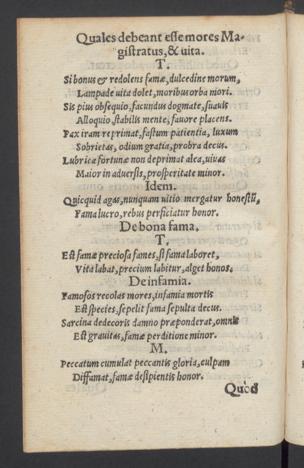 Quales debeant esse mores Ma-
gistratus, & uita.
T.
Si bonus & redolens famæ, dulcedine morum,
Lampade uita dolet, moribus orba mori.
Sis pius obsequio, facundus dogmate, suauis
Alloquio, stabilis mente, fauore placens.
Pax iram reprimat, fastum patientia, luxum
Sobrietas, odium gratia, probra decus.
Lubrica fortunæ non deprimat alea, uiuas
Maior in aduersis, prosperitate minor.
Idem.
Quicquid agas, nunquam uitio mergatur honestū,
Fama lucro, rebus perficiatur honor.
De bona fama.
T.
Est famæ preciosa fames, si fama laboret,
Vita labat, precium labitur, alget honos.
De infamia.
Famosos recolas mores, infamia mortis
Est species, sepelit fama sepulta decus.
Sarcina dedecoris damno præponderat, omnis
Est grauitas, famæ perditione minor.
M.
Peccatum cumulat peccantis gloria, culpam
Diffamat, famæ desipientis honor.
Quòd